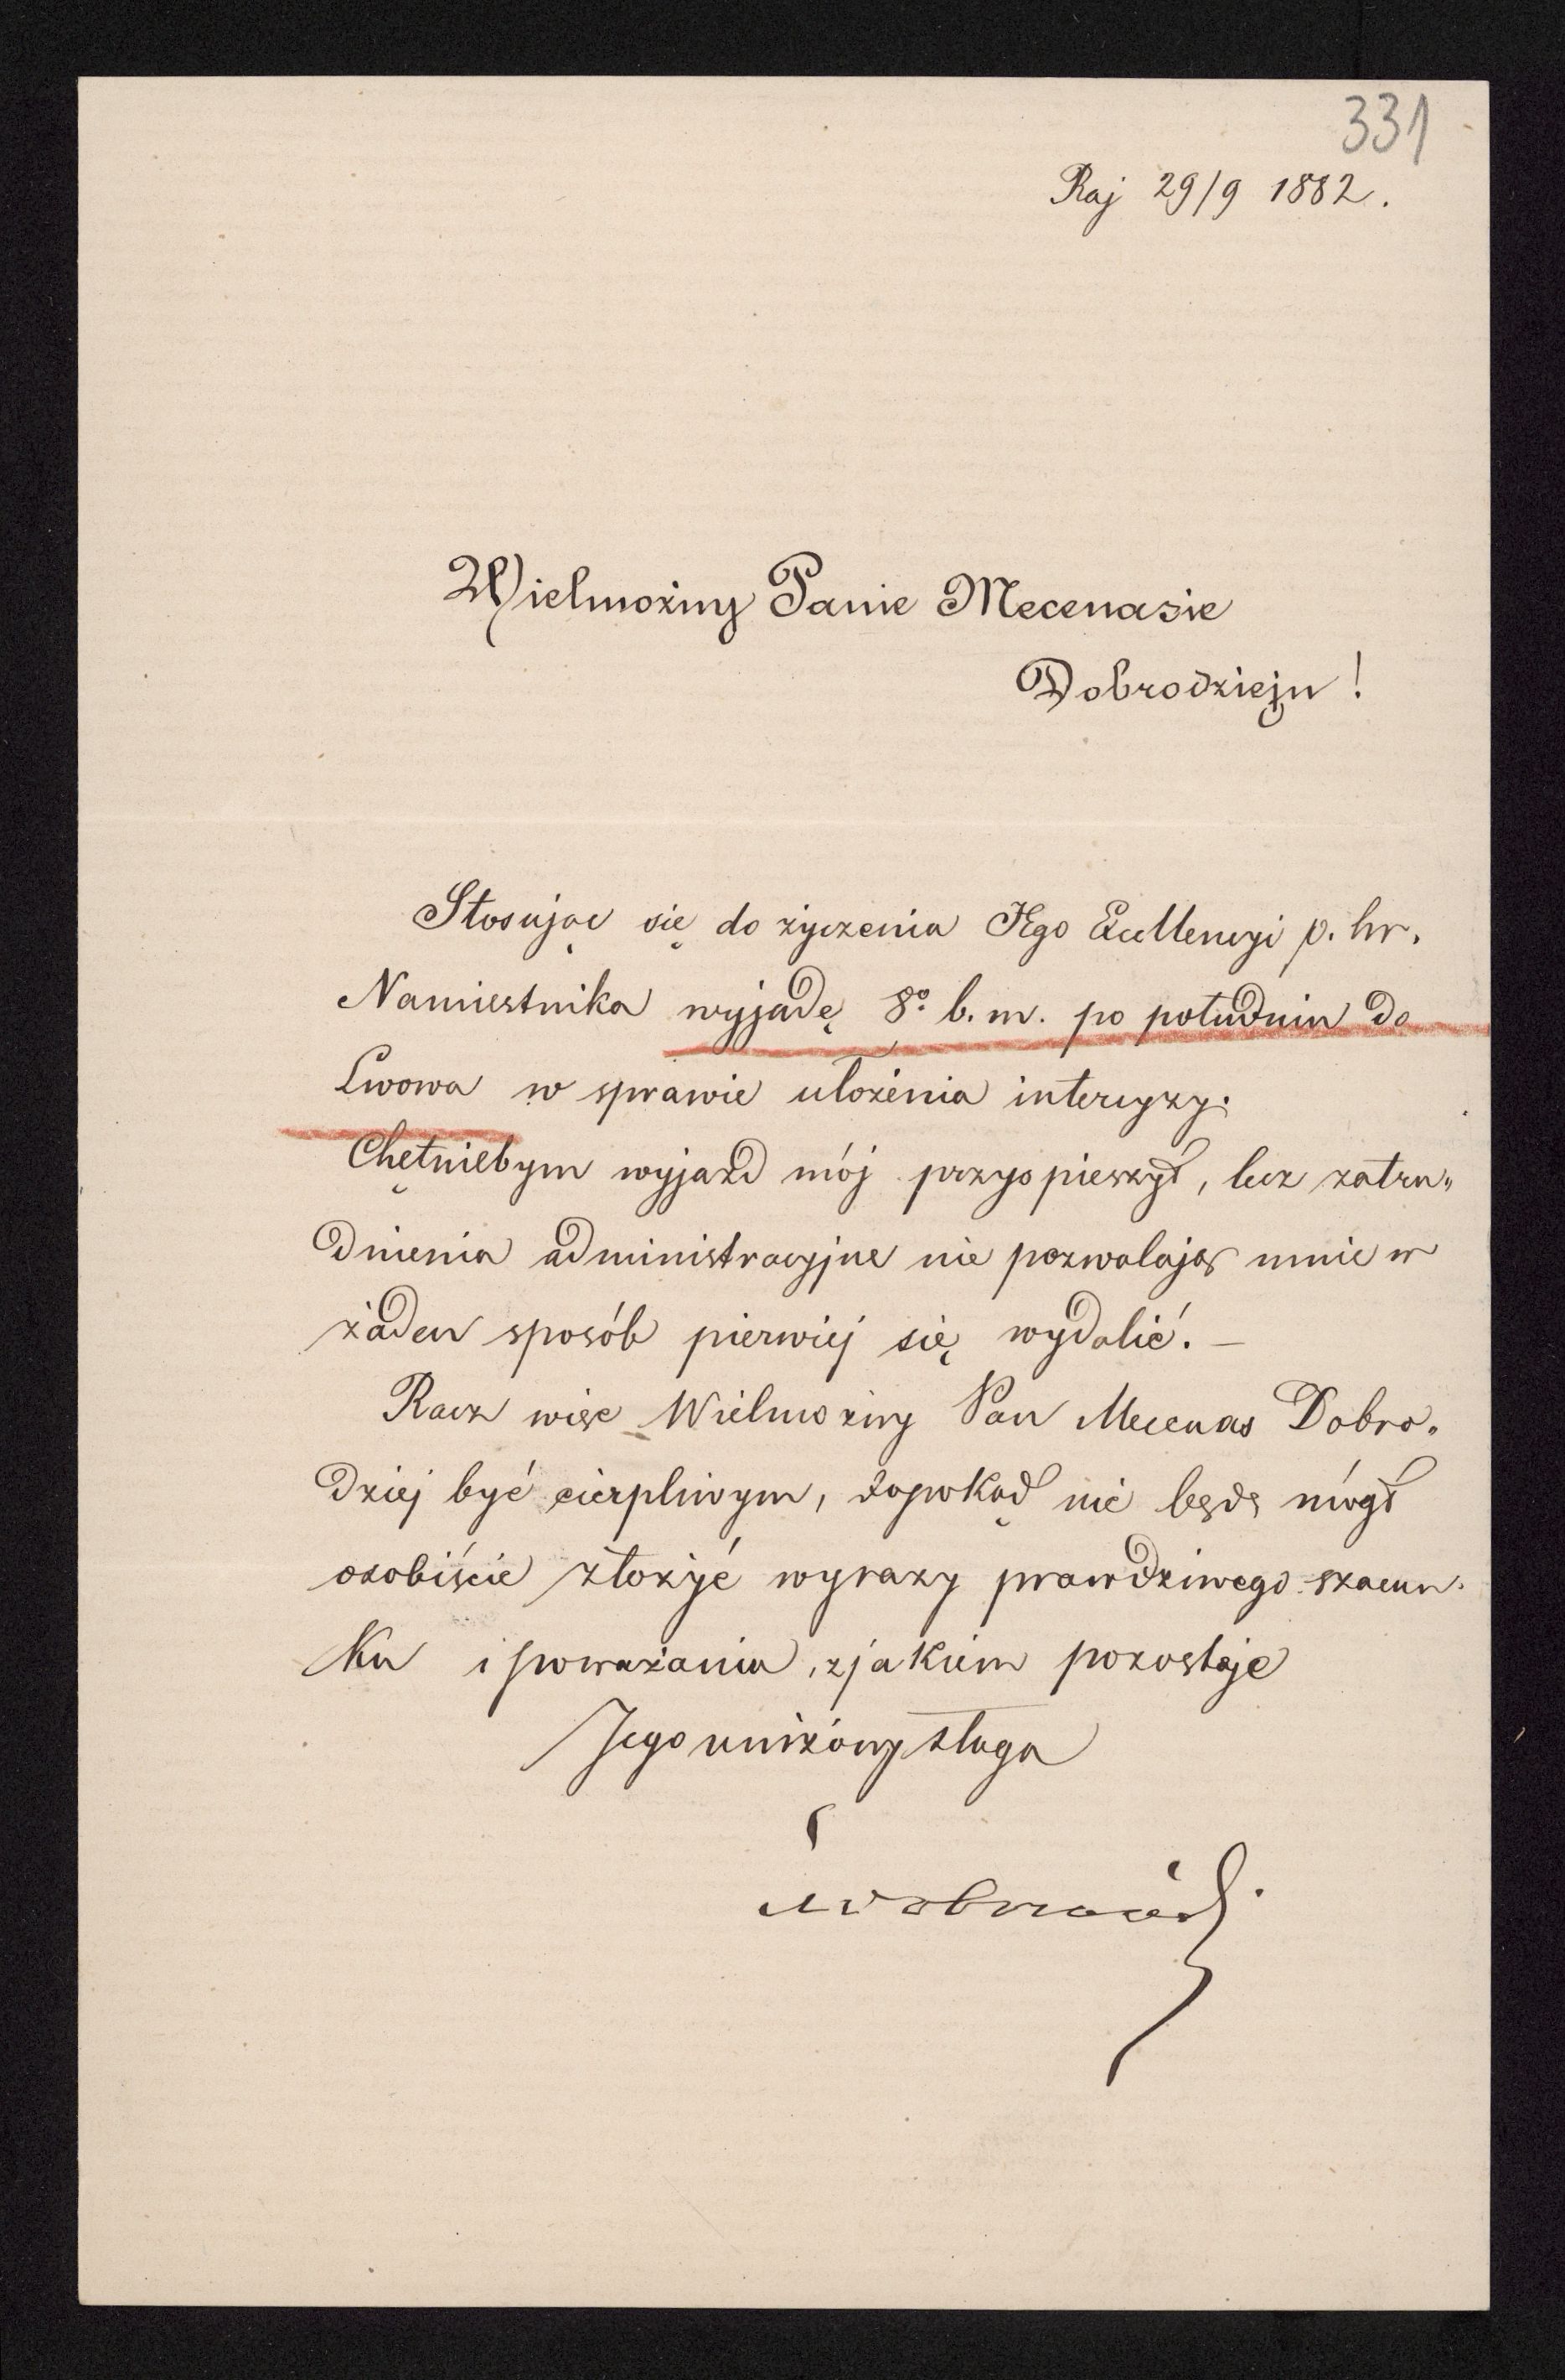 331
Raj 29/9 1882.
Wielmożny Panie Mecenasie
Dobrodzieju!
Stosując się do życzenia JEgo Excellencyi p. hr.
Namiestnika wyjadę 8º b. m. po południu do
Lwowa w sprawie ułożenia intercyzy.
Chętniebym wyjazd mój przyspieszył, lecz zatru„
dnienia administracyjne nie pozwalają mnie w
żaden sposób pierwiej się wydalić. —
Racz więc Wielmożny Pan Mecenas Dobro„
dziej być cierpliwym, dopokąd nie będę mógł
osobiście złożyć wyrazy prawdziwego szacun-
ku i poważania, z jakiem pozostaje
Jego uniżony sługa